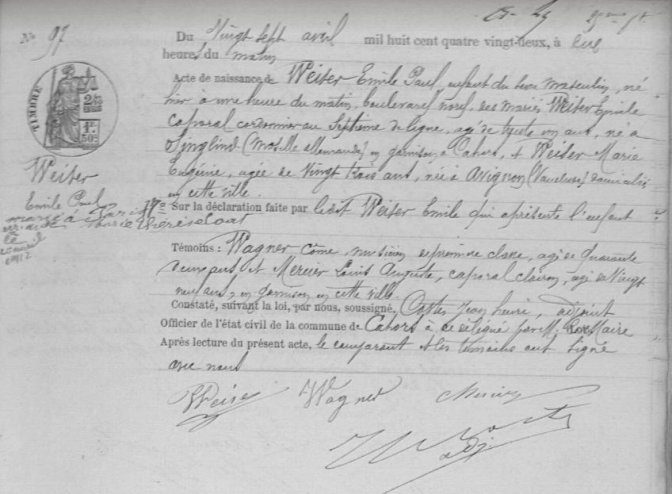 N° 97
Du Vingt sept avril mil huit cent quatre vingt-deux, à
heures du matin
Acte de naissance de Weiser Emile Paul, enfant du sexe masculin, né
hier à une heure du matin, boulevard neuf, des mariés Weiser Emile
caporal cordonnier au Septième de ligne, agé de trente un ans, né à
(Moselle allemande) en garnison à Cahors, et Weiser Marie
Eugénie, agée de Vingt trois ans, née à Avignon (Vaucluse) domiciliés
en cette ville.
Sur la déclaration faite par ledit Weiser Emile qui a présenté l'enfant
Témoins : Wagner Côme, musicien de première classe, agé de quarante
deux ans et Mercier Louis Auguste, caporal clairon, agé de Vingt
neuf ans, en garnison en cette ville.
Constaté, suivant la loi, par nous, soussigné, Jean henri, adjoint
Officier de l'état civil de la commune de Cahors à ce délégué par M. le Maire
Après lecture du présent acte, le comparant et les témoins ont signé
avec nous
Weiser Wagner Mercier
adj.
TIMBRE
Weiser
Emile Paul
marié à Paris 17e
1912